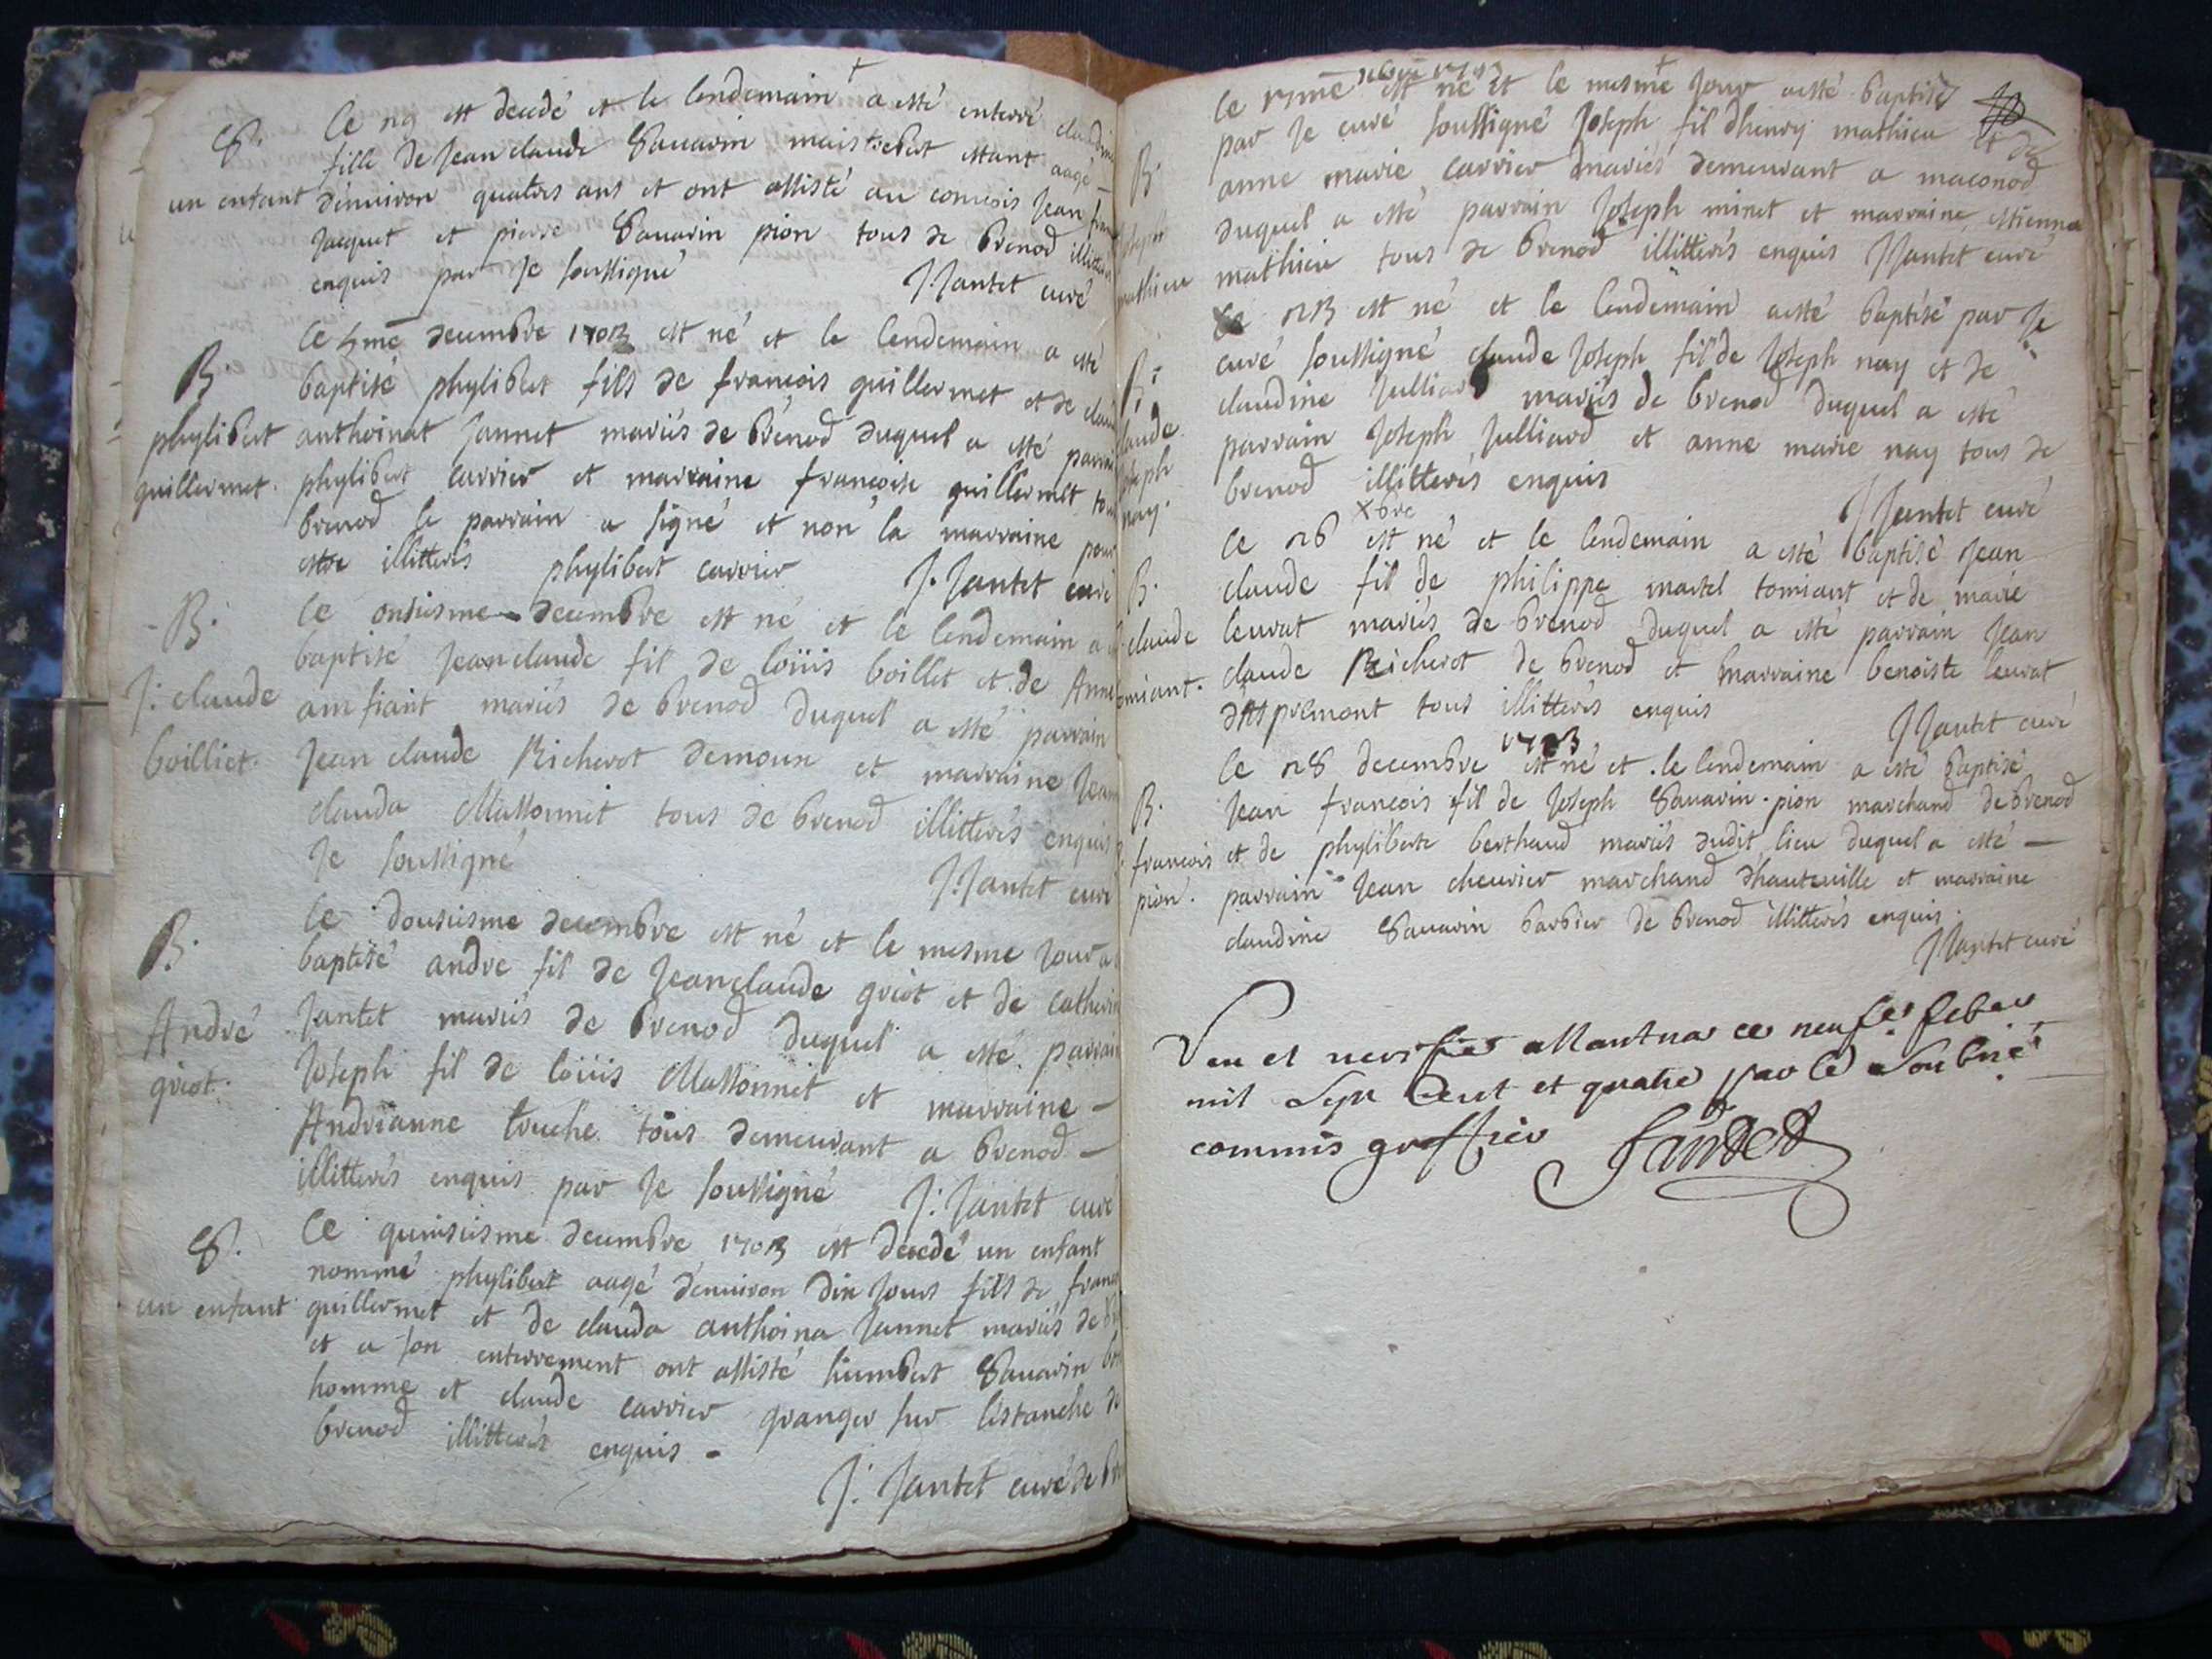 Ce 29 est decedé et le lendemain a esté enterré
S. fille de Jean claude Sauarin maistrebert estant aagé
un enfant d'enuiron quatres ans et ont assisté au conuois Jean
Jacquet et pierre Sauarin pion tous de brenod
enquis par Je soussigné J: Jantet curé
Ce 5me decembre 1703 est né et le lendemain a esté
B baptisé phylibert fils de francois guillermet et de
phylibert anthoinat Jannet mariés de brenod duquel a esté
guillermet. phylibert carrier et marraine francoise guillermet
brenod le parrain a signé et non la marraine pour
estre illitterés phylibert carrier J. Jantet curé
Ce onsiesme decembre est né et le lendemain a
B. baptisé Jeanclaude fil de loüis boillet et de Anne
J: claude amfiant mariés de brenod duquel a esté parrain
boilliet. Jean claude Richerot demoux et marraine
clauda Massonnet tous de brenod illitterés enquis
Je soussigné J: Jantet curé
Ce dousiesme decembre est né et le mesme Jour a
B. baptisé andre fil de Jeanclaude griot et de
André Jantet mariés de brenod duquel a esté parrain
griot. Joseph fil de loüis Massonnet et marraine
Andrianne truche tous demeurant a brenod
illitterés enquis par Je soussigné J: Jantet curé
Ce quinsiesme decembre 1703 est decedé un enfant
S. nommé phylibert aagé d'enuiron dix Jours fils de
un enfant guillermet et de clauda anthoina Jannet mariés de
et a son enterrement ont assisté humbert Sauarin
homme et claude carrier granger sur lestanche de
brenod illitterés enquis
J: Jantet curé de
Ce est né et le mesme Jour aesté baptisé
par Je curé soussigné Joseph fil dhenry mathieu et de
B. anne marie carrier mariés demeurant a maconod
Joseph duquel a esté parrain Joseph minet et marraine estienna
mathieu mathieu tous de brenod illitterés enquis J Jantet curé
Ce 23 est né et le lendemain aesté baptisé par Je
B: curé soussigné claude Joseph fil de Joseph nay et de
claude claudine Julliard mariés de brenod duquel a esté
Joseph parrain Joseph Julliard et anne marie nay tous de
nay. brenod illitterés enquis J Jantet curé
Ce 26 xbre est né et le lendemain a esté baptisé Jean
B. claude fil de philippe martel tomiant et de marie
claude leurat mariés de brenod duquel a esté parrain Jean
tomiant. claude Richerot de brenod et marraine benoiste leurat
d'Aspremont tous illitterés enquis J Jantet curé
Ce 28 decembre 1703 est né et le lendemain a esté baptisé
B. Jean francois fil de Joseph Sauarin pion marchand de brenod
francois et de phyliberte berthaud mariés dudit lieu duquel a esté
pion. parrain Jean cheurier marchand d'hauteuille et marraine
claudine Sauarin barbier de brenod illitterés enquis.
J Jantet curé
Veu et verifié a Nantua ce neufe feber
mil sept cent et quatre par le soubné
commis greffier Jantet